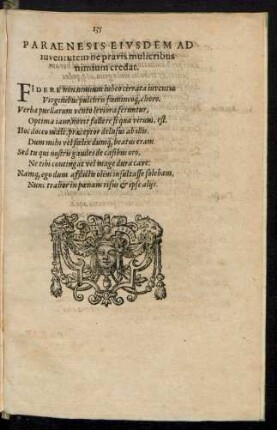 PARAENESIS EIVSDEM AD
iuuentutem ne prauis mulieribus
nimium credat.
FIDERE non nimium iubeo cernata iuuentus
Virgineóue pulchris fœmineóq; choro.
Verba puellarum vento leuiora feruntur,
Optima iam, nouit fallere si qua verum. est.
Hoc doceo vates, præceptor delusus ab illis,
Dum mihi vel felix dumq; beatus eram.
Sed tu qui nostris gaudes de casibus oro,
Ne tibi contingat vel magè dura caue:
Namq; ego dum afflictis olim insultasse solebam,
Nunc trahor in pœnam risus & ipse alijs.